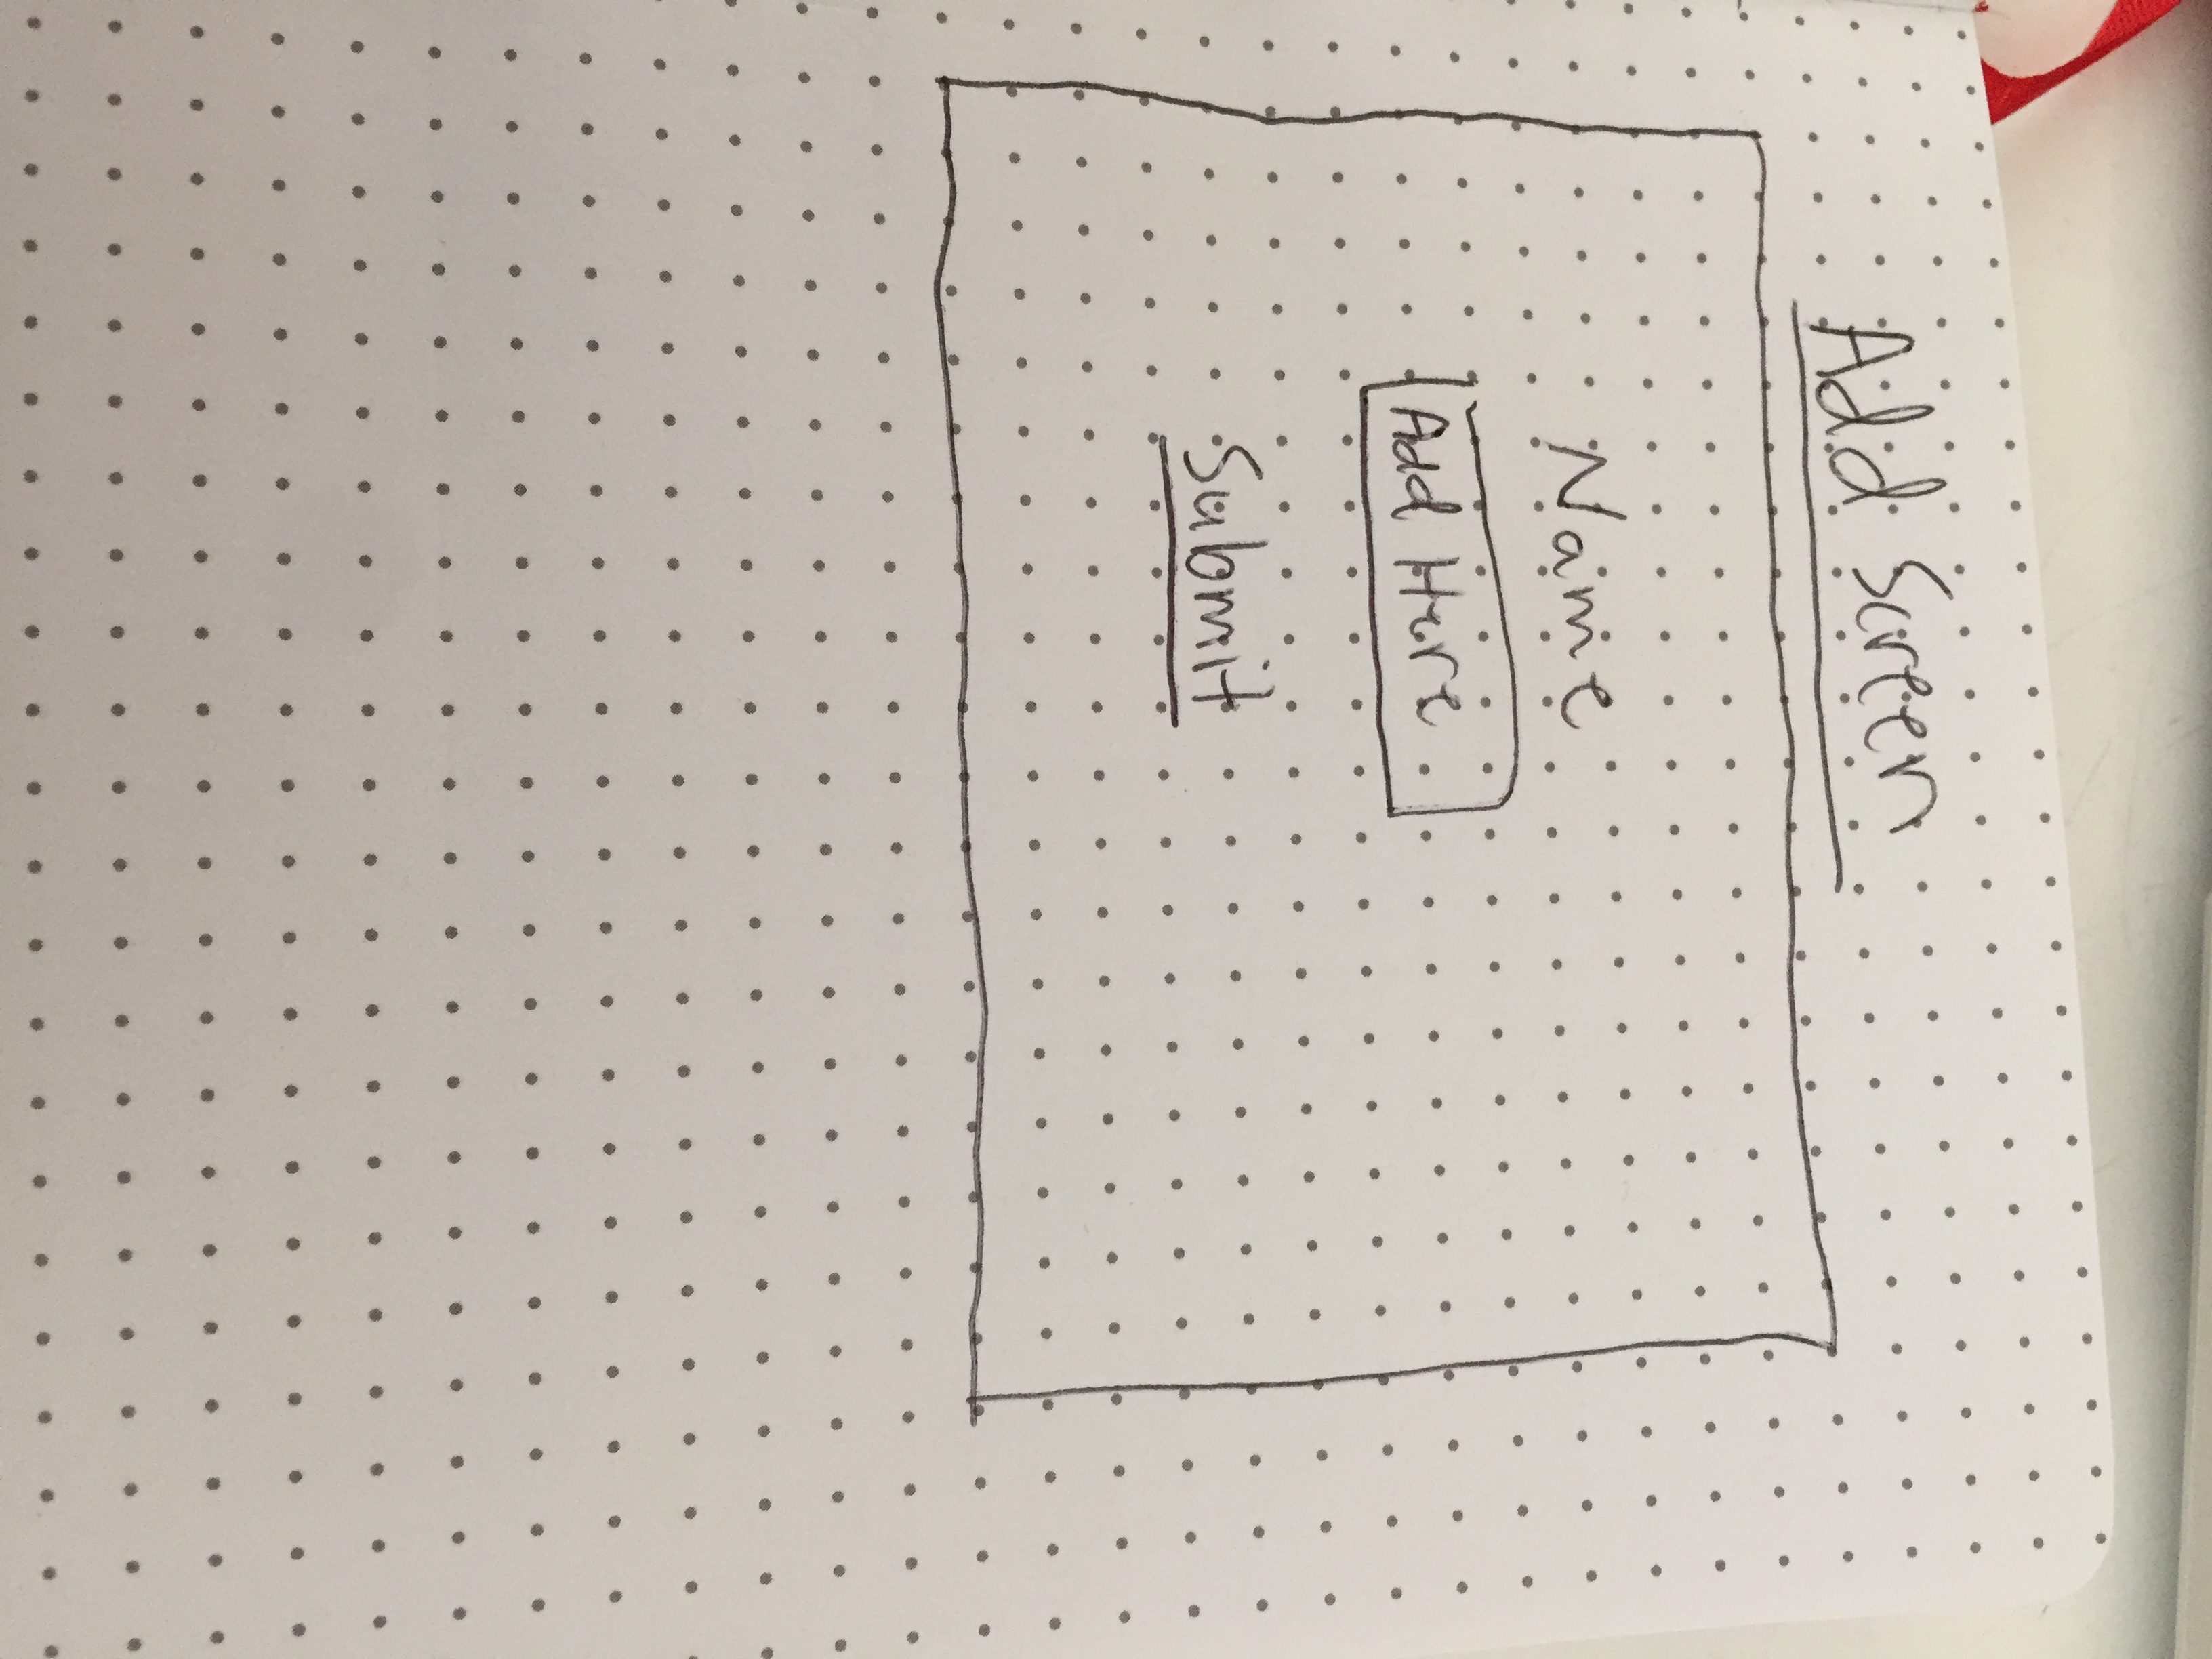 Add Screen
Name
Add Here
Submit